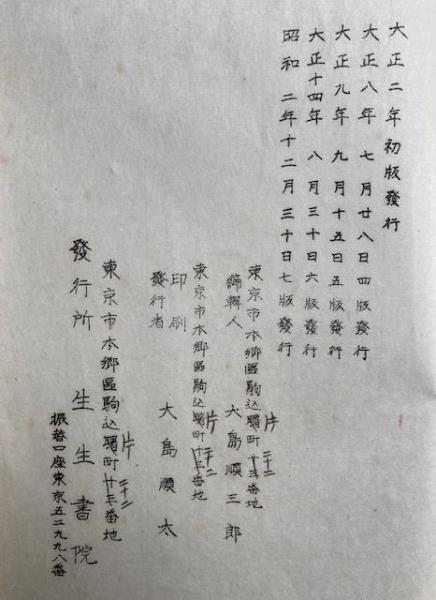 大正二年初版發行
大正八年七月廿八日四版發行
大正九年九月十五日五版發行
大正十四年八月三十日六版發行
昭和二年十二月三十日七版發行
東京市本郷區駒込片町二十二番地
編輯人 大島順三郎
東京市本郷區駒込片町二十二番地
印刷
發行者 大島順太
東京市本郷區駒込片町二十二番地
發行所 生生書院
振替口座東京五二九九八番